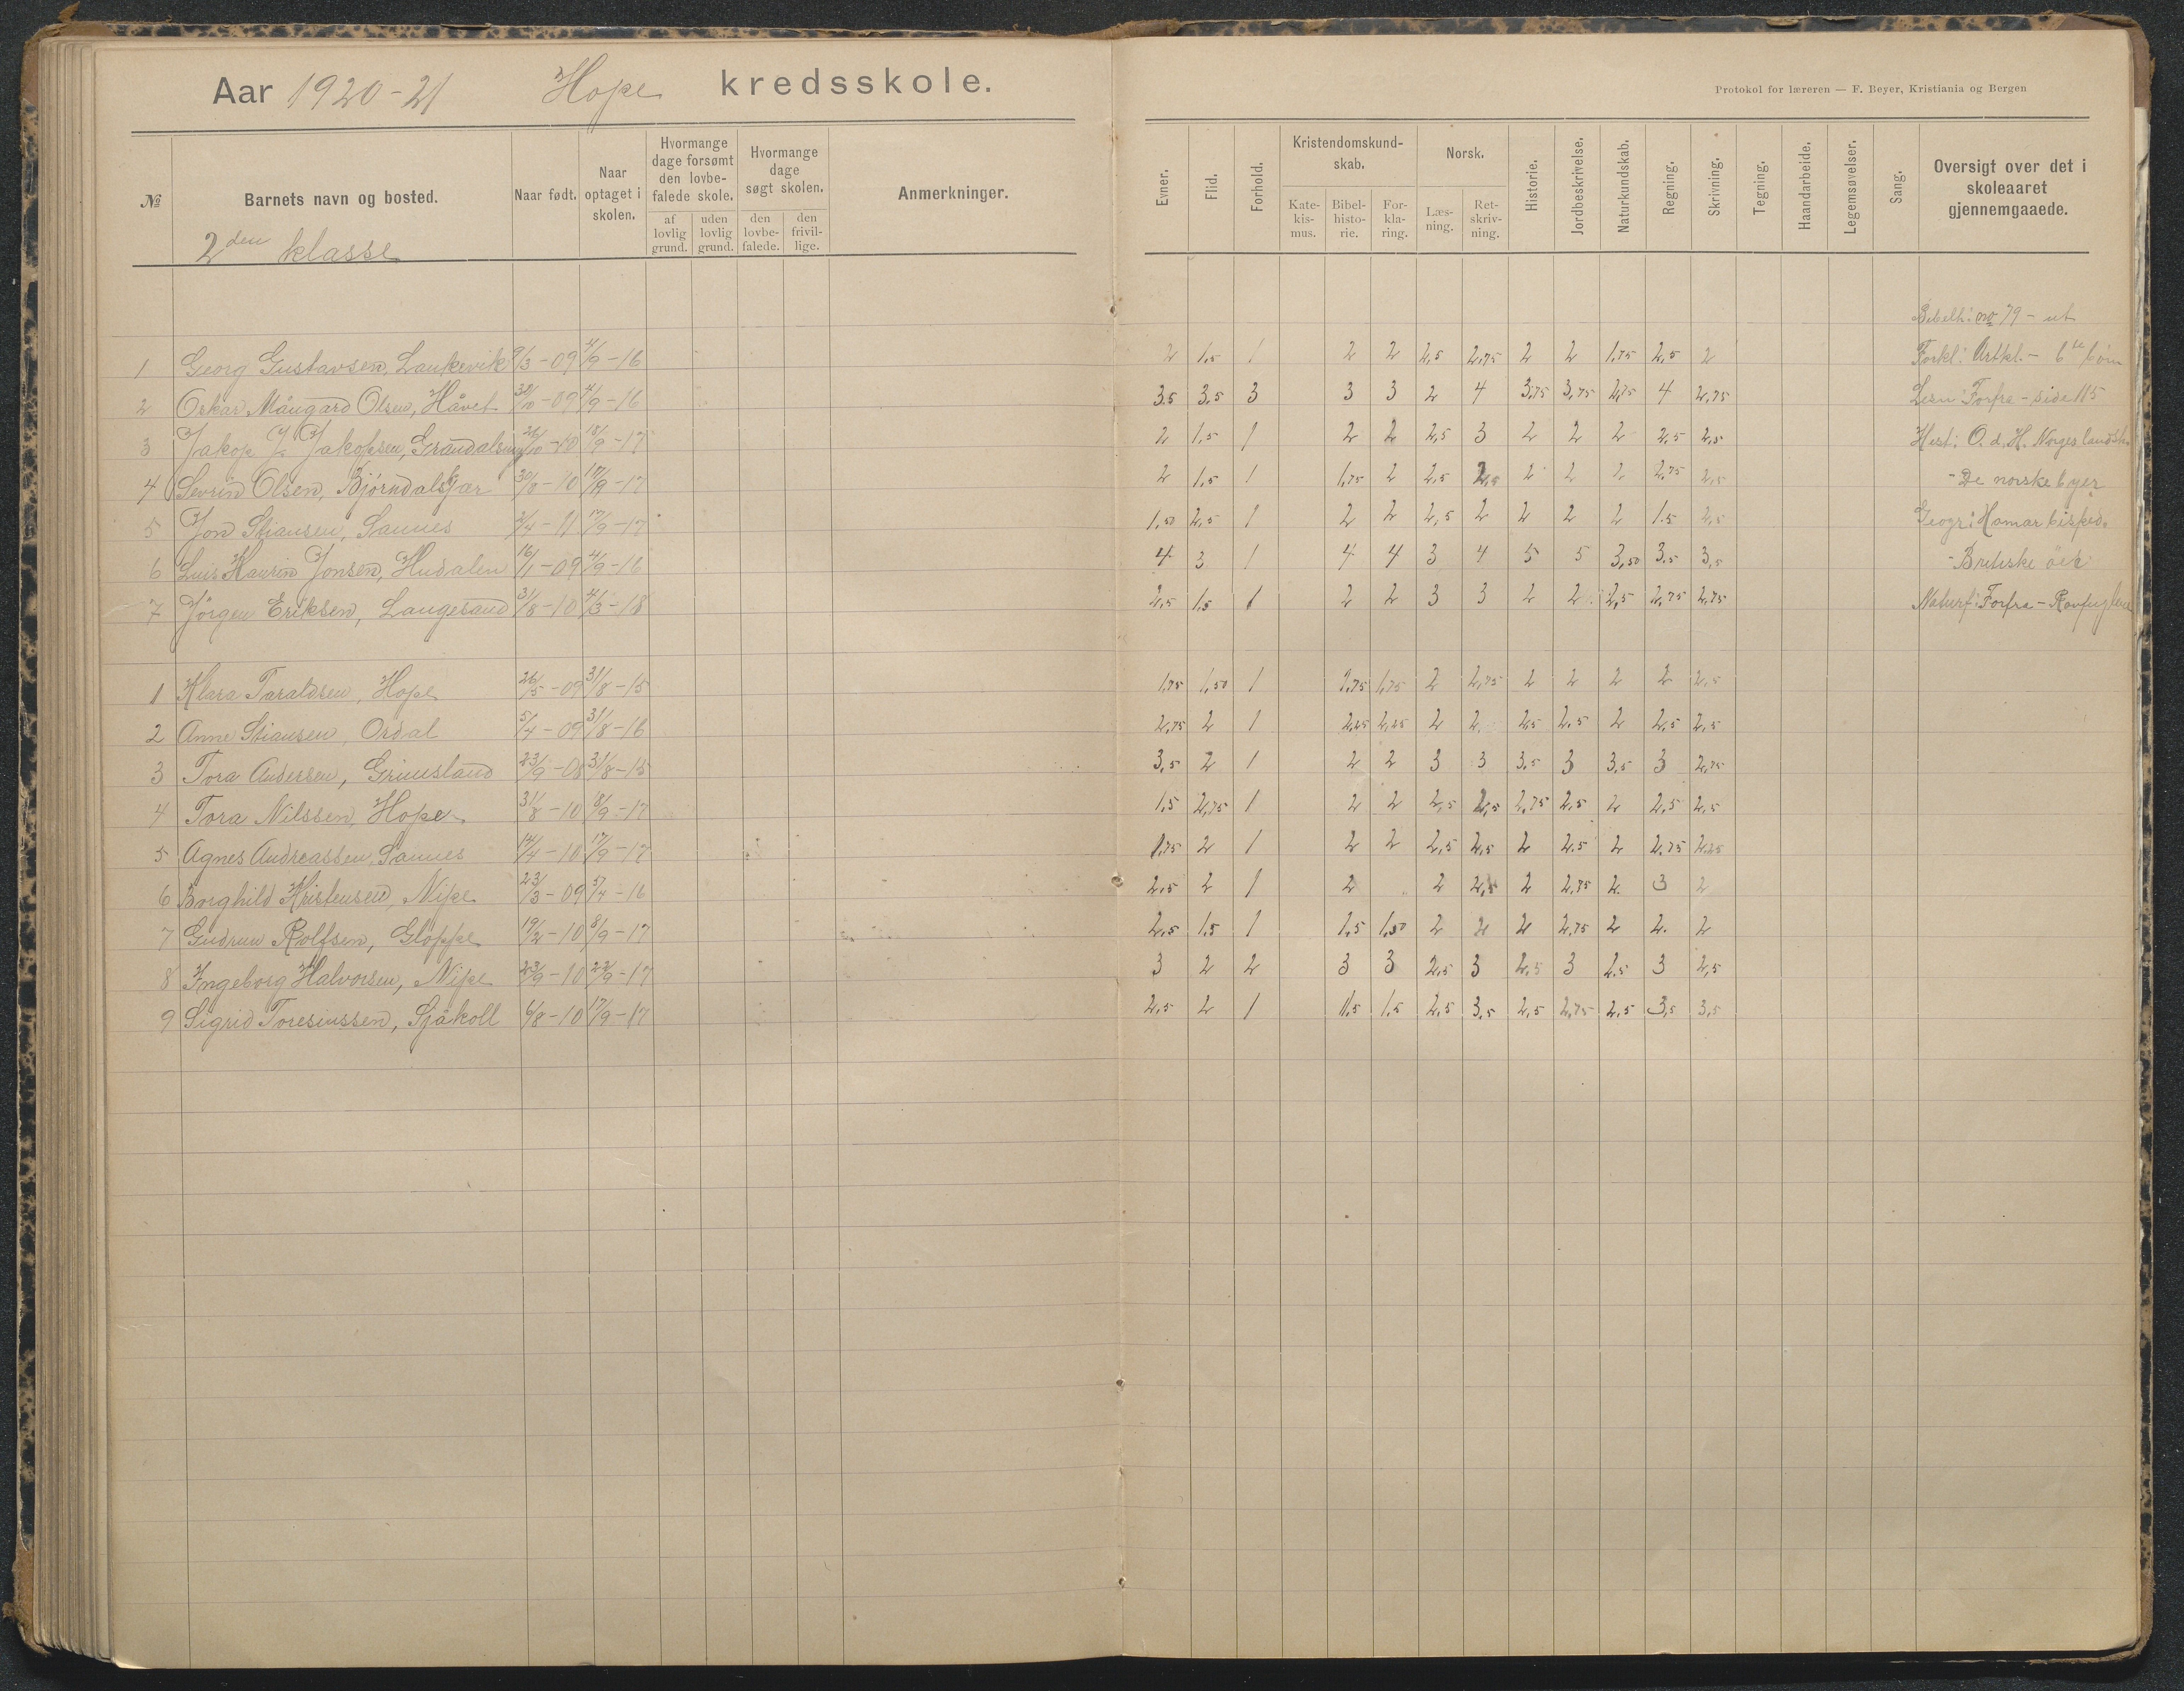 Aar 1920-21 Hope kredsskole.
Protokol for læreren — F. Beyer, Kristiania og Bergen
№ Barnets navn og bosted. Naar født. Naar optaget i skolen. Hvormange dage forsømt den lovbefalede skole. af lovlig grund. uden lovlig grund. Hvormange dage søgt skolen. den lovbefalede. den frivillige. Anmerkninger.
Evner. Flid. Forhold. Kristendomskundskab. Katekismus. Bibelhistorie. Forklaring. Norsk. Læsning. Retskrivning. Historie. Jordbeskrivelse. Naturkundskab. Regning. Skrivning. Tegning. Haandarbeide. Legemsøvelser. Sang. Oversigt over det i skoleaaret gjennemgaaede.
2den klasse
Bibelh: no 79 - ut
1 Georg Gustavsen, Laukevik 9/3-09 4/9-16 2 1,5 1 2 2 2,5 2,75 2 2 1,75 2,5 2 Forkl: Artkl. -
2 Oskar Mångard Olsen, Håvet 30/10-09 4/9-16 3.5 3,5 3 3 3 2 4 3,75 3,75 2,75 4 2,75 Lesn: Forfra - side 115
3 Jakop J. Jakopsen, 18/9-17 2 1,5 1 2 2 2,5 3 2 2 2 2,5 2,5 Hist: O. d. H. Norges
4 Sevrin Olsen, 30/8-10 17/9-17 2 1,5 1 1,75 2 2,5 2 2 2 2,75 2,5 - De norske byer
5 Jon Stiansen, Sannes 2/4-11 17/9-17 1,50 2,5 1 2 2 2,5 2 2 2 2 1.5 2,5 Geogr: Hamar bisped.
6 Jonsen, Hudalen 16/1-09 4/9-16 4 3 1 4 4 3 4 5 5 3,50 3.5 3,5 - Britiske öer
7 Jörgen Eriksen, Langesand 31/8-10 4/3-18 2,5 1,5 1 2 2 3 3 2 2 2,5 2,75 2,75 Naturf: Forfra - Rovfuglene
1 Klara Taraldsen, Hope 26/5-09 31/8-15 1,75 1,50 1 1,75 1,75 2 2,75 2 2 2 2 2,5
2 Anne Stiansen, Ordal 5/4-09 31/8-16 2,75 2 1 2,25 2,25 2 2 2,5 2,5 2 2,5 2,5
3 Tora Andersen, Grimsland 23/9-08 31/8-15 3,5 2 1 2 2 3 3 3,5 3 3,5 3 2,75
4 Tora Nilssen, Hope 31/8-10 8/9-17 1,5 2,75 1 2 2 2,5 2,5 2,75 2,5 2 2,5 2,5
5 Agnes Andreassen, Sannes 14/4-10 17/9-17 1,75 2 1 2 2 2,5 2,5 2 2.5 2 2,75 2,25
6 Borghild Kristensen, Nipe 23/3-09 5/4-16 2,5 2 1 2 2 2,5 2 2,75 2 3 2
7 Gudrun Rolfsen, Gloppe 19/2-10 8/9-17 2,5 1,5 1 1,5 1,50 2 2 2 2,75 2 2 2
8 Ingeborg Halvorsen, Nipe 23/9-10 23/9-17 3 2 2 3 3 2,5 3 2,5 3 2,5 3 2,5
9 Sigrid Toresiussen, Sjåkoll 6/8-10 17/9-17 2,5 2 1 1,5 1,5 2,5 3,5 2,5 2,75 2,5 3,5 3,5